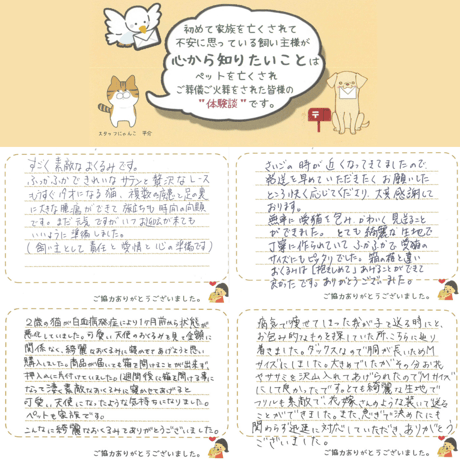 初めて家族を亡くされて
不安に思っている飼い主様が
心から知りたいことは
ペットを亡くされ
ご葬儀ご火葬をされた皆様の
"体験談"です。
スタッフにゃんこ
すごく素敵なおくるみです。
ふかふかできれいなサテンと贅沢なレース
もうすぐ
になる猫、複数の病気と足の裏
に大きな腫瘍ができて旅立ちも時間の問題
です。まだ元気ですがいつお
が来ても
いいように準備しました。
(飼い主として責任と愛情と心の準備です)
ご協力ありがとうございました。
さいごの時が近くなってきてましたので、
発送を早めていただきたくお願いした
ところ快く応じてくださり、大変感謝して
おります。
無事に愛猫を包み、かわいく見送ること
ができました。とても綺麗な生地で
丁寧に作られていてふかふかで愛猫の
サイズもピッタリでした。箱の棺と違い
おくるみは「抱きしめて」あげることができて
良かったです。ありがとうございました。
ご協力ありがとうございました。
2歳の猫が白血病発症により1ヶ月前から状態が
悪化していました。可愛い天使のおくるみを見て金額に
関係なく、綺麗なおくるみに寝かせてあげようと思い
購入しました。商品が届いても箱を開けることが出来ず、
押入れに片付けていました。1週間後に箱を開ける事に
なって凄く素敵なおくるみに寝かせてあげると
可愛い天使になったような気持ちになりました。
ペットも家族です。
こんなに綺麗なおくるみでありがとうございました。
ご協力ありがとうございました。
病気で痩せてしまった我が子を送る時にと、
お包み的なものを探していた所こちらに辿り
着きました。ダックスなので胴が長いためM
サイズにしました。大きめでしたがその分お花
やササミを沢山入れてあげられたのでMサイズ
にして良かったです。とても綺麗な生地で
フリルも素敵で、花嫁さんのような装いで送る
ことができました。また、急ぎで決めたにも
関わらず迅速に対応していただき、ありがとう
ございました。
ご協力ありがとうございました。